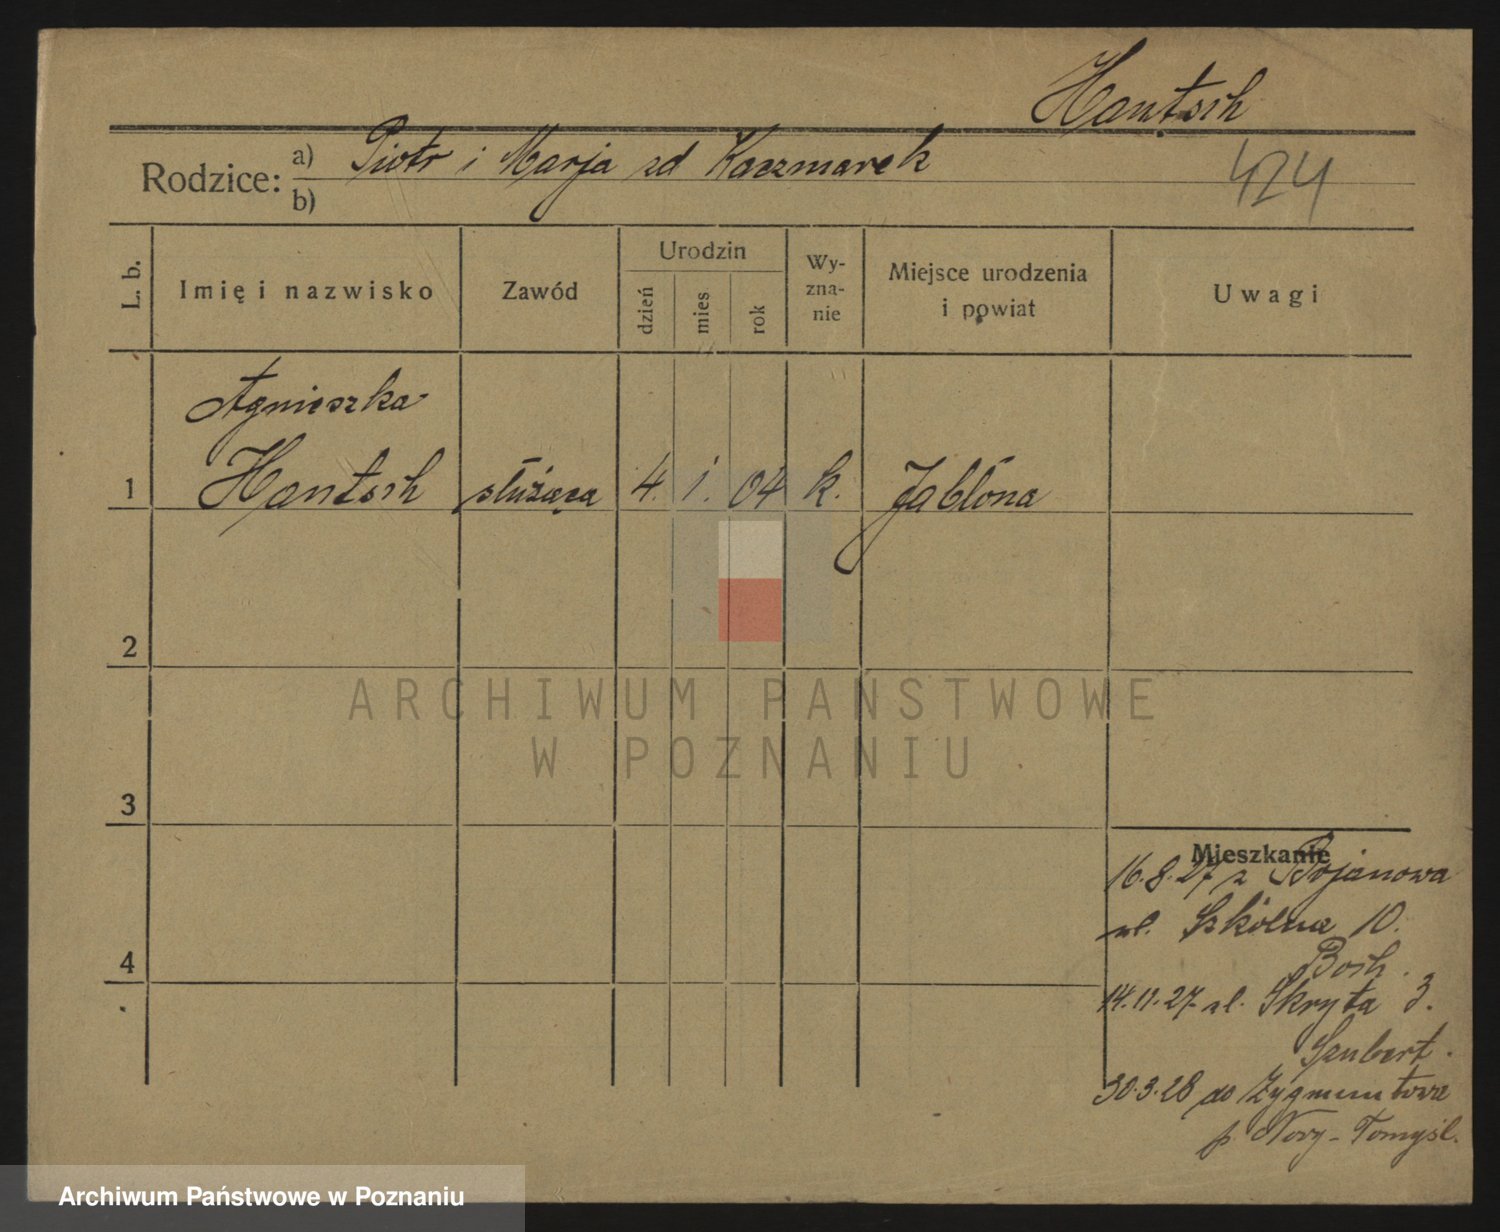 Hantsch
Rodzice: a) Piotr i Marja zd Kaczmarek
b)
424
L. b.
Imię i nazwisko
Zawód
Urodzin
dzień
mies
rok
Wy-
zna-
nie
Miejsce urodzenia
i powiat
Uwagi
Agnieszka
1 Hantsch służąca 4. 1. 04 k. Jabłona
2
3
4
Mieszkanie
16.8.27 z Bojanowa
ul. Szkólna 10.
Bosh.
14.11.27 ul. Skryta 3.
Szubert.
30.3.28 do Zygmuntowa
p. Nowy-Tomyśl.
ARCHIWUM PAŃSTWOWE
W POZNANIU
Archiwum Państwowe w Poznaniu